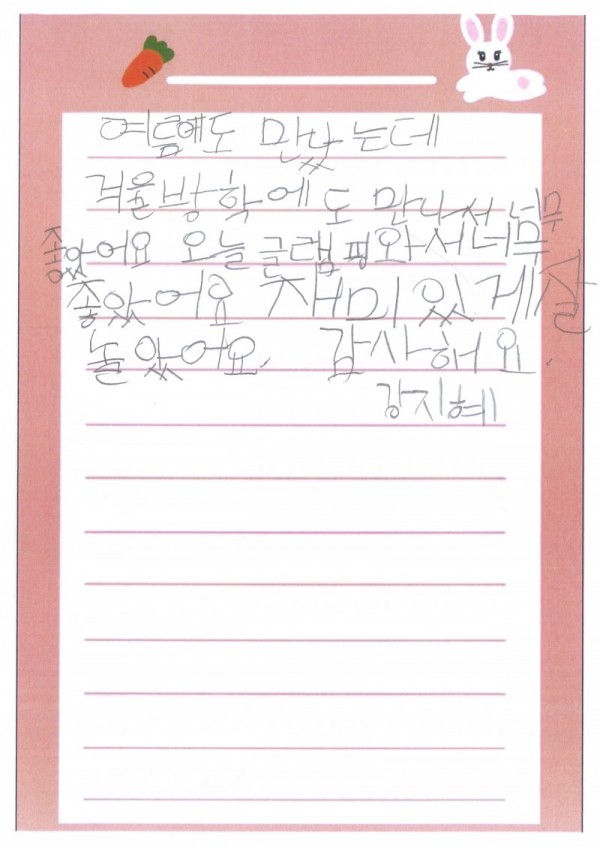 여름에도 만났는데
겨울방학에도 만나서 너무
좋았어요 오늘 글램핑와서너무
좋았어요 재미있게잘
놀았어요. 감사해요.
강지혜